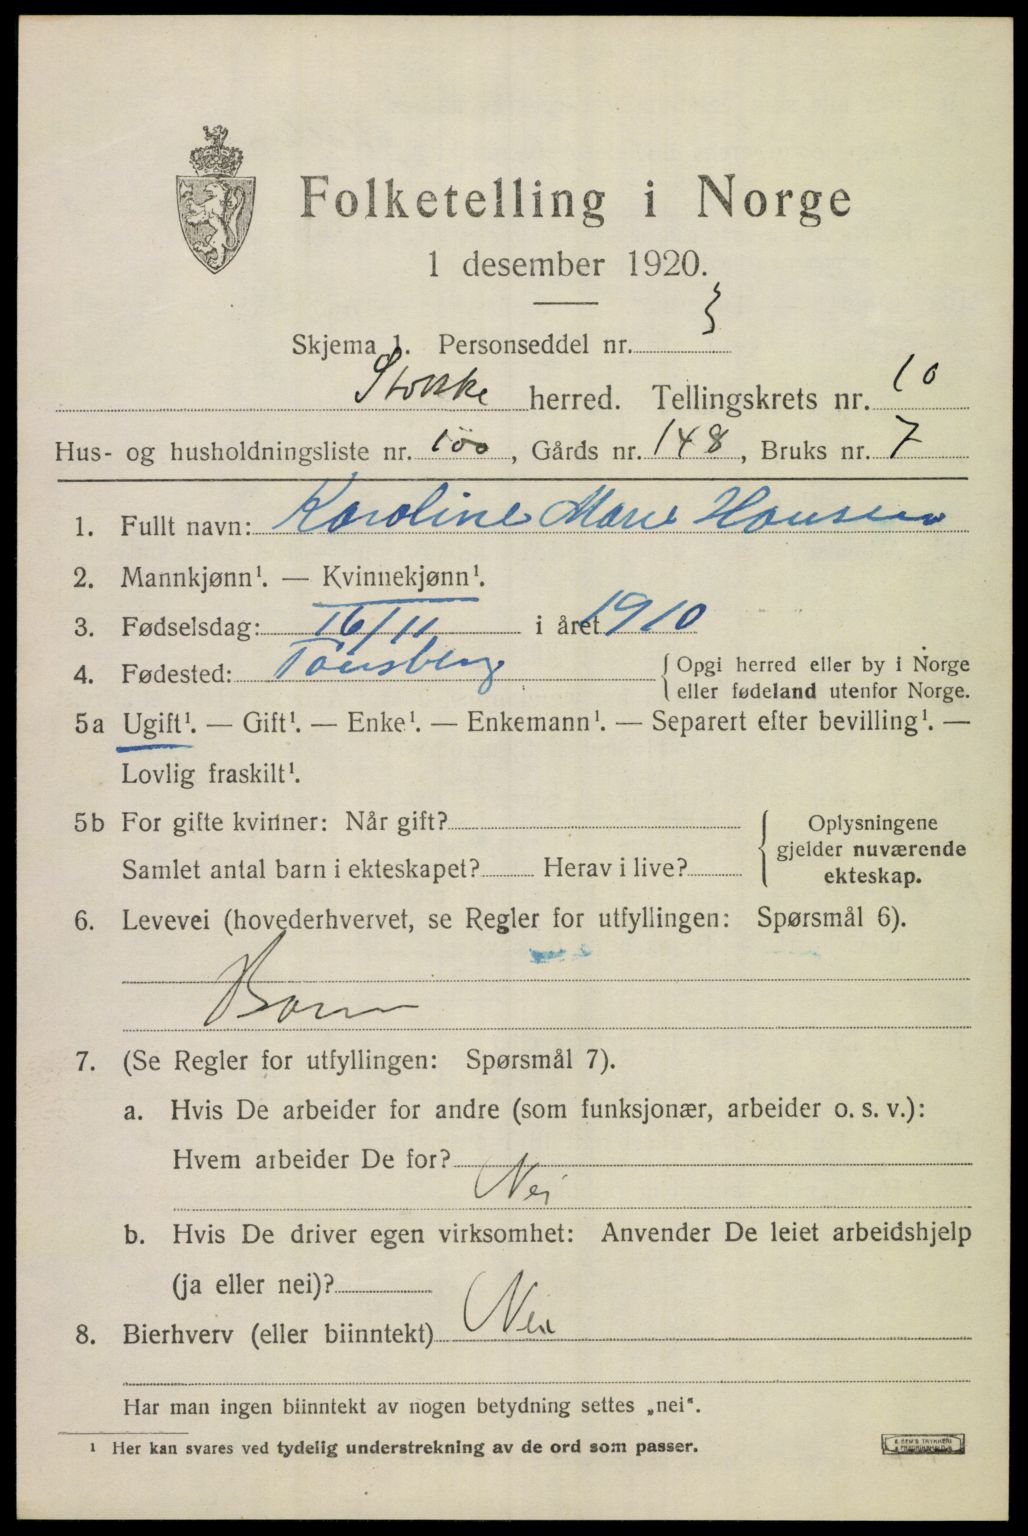 Folketelling i Norge
1 desember 1920.
Skjema 1. Personseddel nr. 3
Stokke herred. Tellingskrets nr. 10
Hus- og husholdningsliste nr. 100, Gårds nr. 148, Bruks nr. 7
1. Fullt navn: Karoline Marie Hansen
2. Mannkjønn¹. — Kvinnekjønn¹.
3. Fødselsdag: 16/11 i året 1910
4. Fødested: Tønsberg { Opgi herred eller by i Norge
eller fødeland utenfor Norge.
5a Ugift¹. — Gift¹. — Enke¹. — Enkemann¹. — Separert efter bevilling¹. —
Lovlig fraskilt¹.
5b For gifte kvinner: Når gift?
Samlet antal barn i ekteskapet? Herav i live?
{ Oplysningene
gjelder nuværende
ekteskap.
6. Levevei (hovederhvervet, se Regler for utfyllingen: Spørsmål 6).
Barn
7. (Se Regler for utfyllingen: Spørsmål 7).
a. Hvis De arbeider for andre (som funksjonær, arbeider o. s. v.):
Hvem arbeider De for?
Nei
b. Hvis De driver egen virksomhet: Anvender De leiet arbeidshjelp
(ja eller nei)?
8. Bierhverv (eller biinntekt) Nei
Har man ingen biinntekt av nogen betydning settes „nei".
¹ Her kan svares ved tydelig understrekning av de ord som passer.